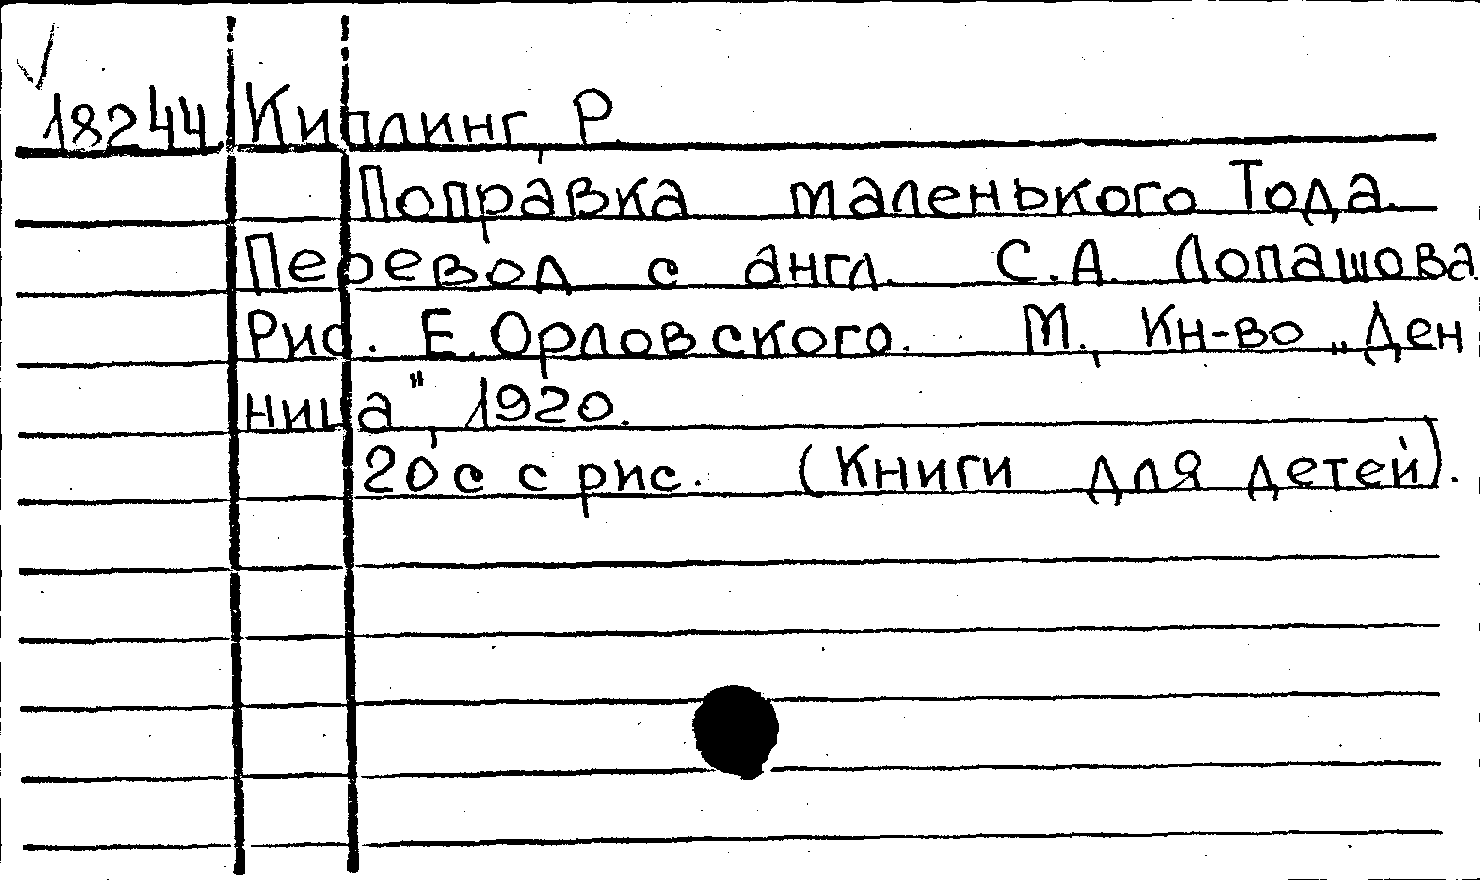 18244 Киплинг, Р.
Поправка маленького Тода.
Перевод с англ. С.А. Лопашова
Рис. Е. Орловского. М., Кн-во „Ден
ница", 1920.
20 с с рис. (Книги для детей).